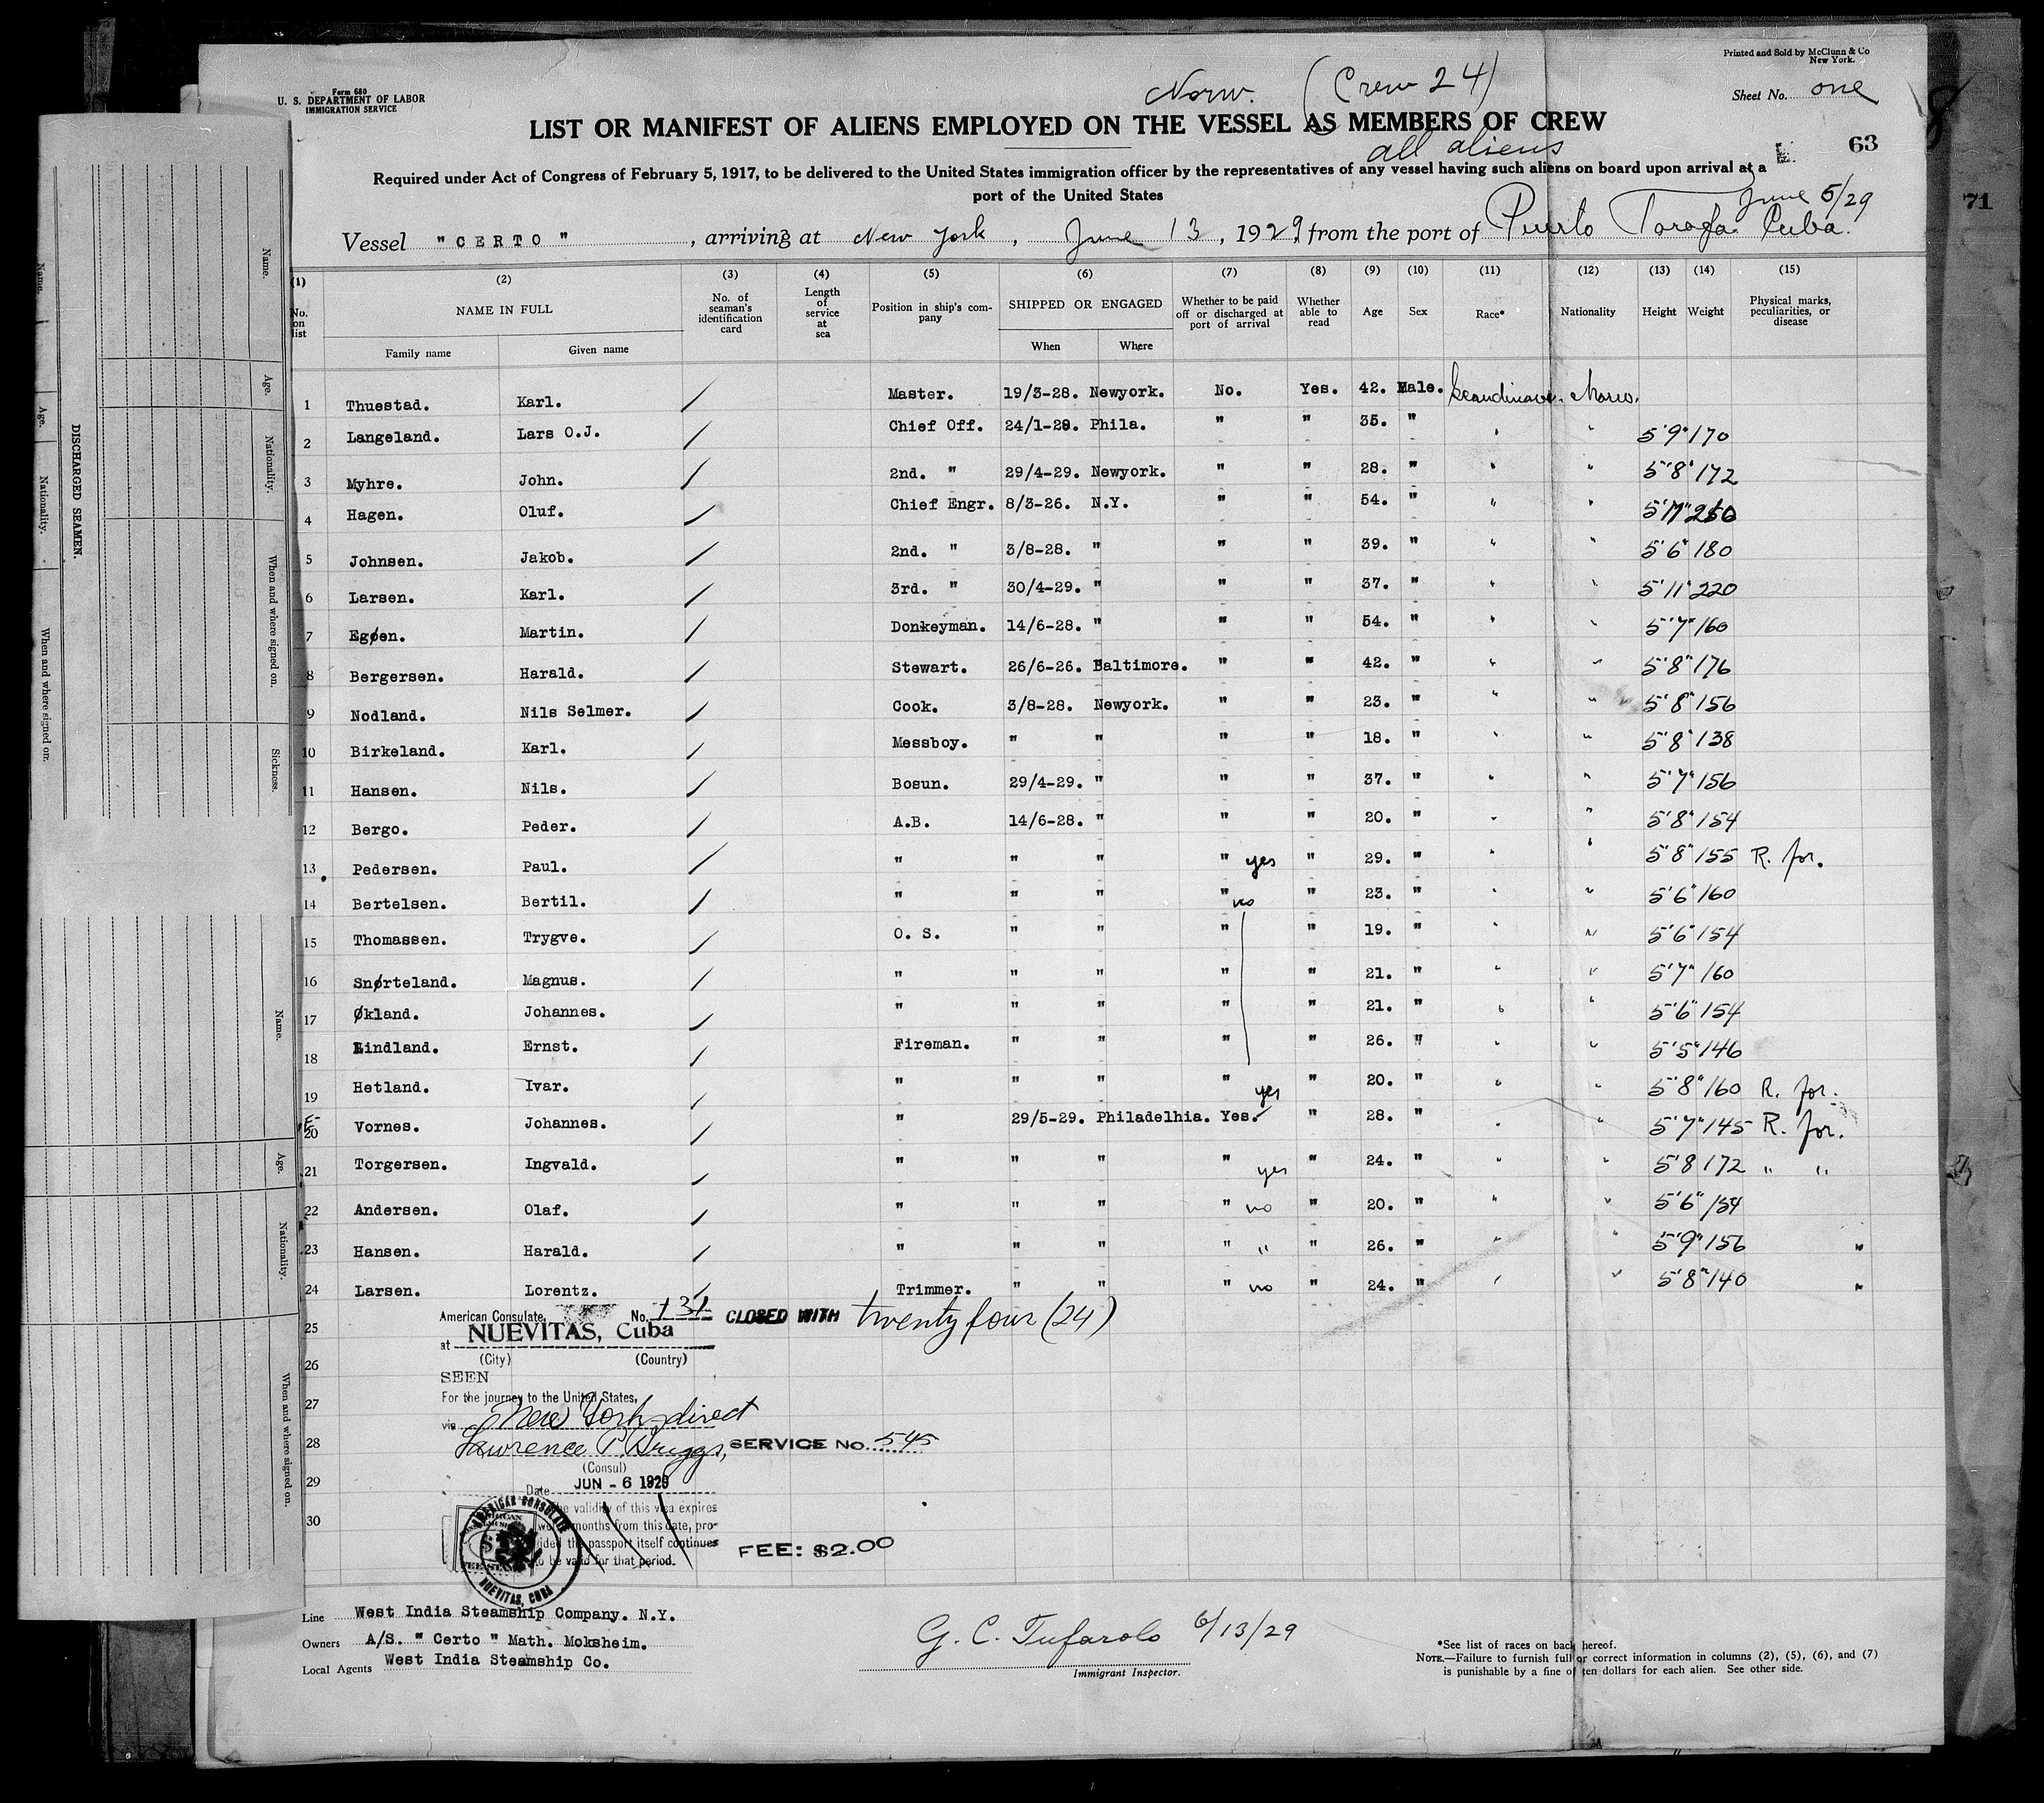 Printed and Sold by McClunn & Co
New York.
Form 680
U. S. DEPARTMENT OF LABOR
IMMIGRATION SERVICE
Norw. (Crew 24)
Sheet No. one
LIST OR MANIFEST OF ALIENS EMPLOYED ON THE VESSEL AS MEMBERS OF CREW
all aliens
63
Required under Act of Congress of February 5, 1917, to be delivered to the United States immigration officer by the representatives of any vessel having such aliens on board upon arrival at a
port of the United States
June 5/29
71
Vessel "CERTO", arriving at New York, June 13, 1929, from the port of Puerto Tarafa Cuba.
(1) (2) (3) (4) (5) (6) (7) (8) (9) (10) (11) (12) (13) (14) (15)
No. on list NAME IN FULL No. of seaman's identification card Length of service at sea Position in ship's company SHIPPED OR ENGAGED Whether to be paid off or discharged at port of arrival Whether able to read Age Sex Race* Nationality Height Weight Physical marks, peculiarities, or disease
Family name Given name When Where
1 Thuestad. Karl. Master. 19/3-28. Newyork. No. Yes. 42. Male. Scandinavn. Norw.
2 Langeland. Lars O.J. Chief Off. 24/1-29. Phila. " " 35. " " " 5'9" 170
3 Myhre. John. 2nd. " 29/4-29. Newyork. " " 28. " " " 5'8" 172
4 Hagen. Oluf. Chief Engr. 8/3-26. N.Y. " " 54. " " "
5 Johnsen. Jakob. 2nd. " 3/8-28. " " " 39. " " " 5'6" 180
6 Larsen. Karl. 3rd. " 30/4-29. " " " 37. " " " 5'11" 220
7 Egøen. Martin. Donkeyman. 14/6-28. " " " 54. " " " 5'7" 160
8 Bergersen. Harald. Stewart. 26/6-26. Baltimore. " " 42. " " " 5'8" 176
9 Nodland. Nils Selmer. Cook. 3/8-28. Newyork. " " 23. " " " 5'8" 156
10 Birkeland. Karl. Messboy. " " " " 18. " " " 5'8" 138
11 Hansen. Nils. Bosun. 29/4-29. " " " 37. " " " 5'7" 156
12 Bergo. Peder. A.B. 14/6-28. " " " 20. " " " 5'8" 154
13 Pedersen. Paul. " " " " yes " 29. " " " 5'8" 155 R. for.
14 Bertelsen. Bertil. " " " " no " 23. " " " 5'6" 160
15 Thomassen. Trygve. O. S. " " " " 19. " " " 5'6" 154
16 Snørteland. Magnus. " " " " " 21. " " " 5'7" 160
17 Økland. Johannes. " " " " " 21. " " " 5'6" 154
18 Lindland. Ernst. Fireman. " " " " 26. " " " 5'5" 146
19 Hetland. Ivar. " " " " yes " 20. " " " 5'8" 160 R. for.
20 Vornes. Johannes. " 29/5-29. Philadelhia. Yes. " 28. " " " 5'7" 145 R. for.
21 Torgersen. Ingvald. " " " " yes " 24. " " " 5'8 172 " "
22 Andersen. Olaf. " " " " no " 20. " " " 5'6" 154
23 Hansen. Harald. " " " " " " 26. " " " 5'9" 156
24 Larsen. Lorentz. Trimmer. " " " no " 24. " " " 5'8" 140
25
26
27
28
29
30
American Consulate, No. 131 CLOSED WITH twenty four (24)
at NUEVITAS, Cuba
(City) (Country)
SEEN
For the journey to the United States,
via New York direct
Lawrence P. Briggs, SERVICE No. 545
(Consul)
Date JUN - 6 1929
The validity of this visa expires
months from this date, pro-
vided the passport itself continues
to be valid for that period.
FEE: $2.00
AMERICAN CONSULATE
NUEVITAS, CUBA
Line West India Steamship Company. N.Y.
Owners A/S. " Certo " Math. Moksheim.
Local Agents West India Steamship Co.
G. C. Tufarolo 6/13/29
Immigrant Inspector.
*See list of races on back hereof.
NOTE.—Failure to furnish full or correct information in columns (2), (5), (6), and (7)
is punishable by a fine of ten dollars for each alien. See other side.
DISCHARGED SEAMEN.
Name.
Age.
Nationality.
When and where signed on.
Name.
Age.
Nationality.
When and where signed on.
Sickness.
Name.
Age.
Nationality.
When and where signed on.